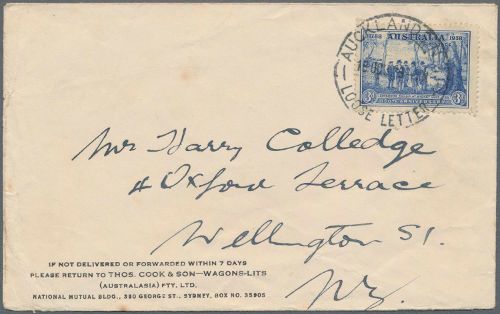 AUCKLAND
LOOSE LETTER
1788 1938
AUSTRALIA
3d 3d
150TH ANNIVERSARY
Mr Harry Colledge
4 Oxford Terrace
Wellington St.
NZ.
IF NOT DELIVERED OR FORWARDED WITHIN 7 DAYS
PLEASE RETURN TO THOS. COOK & SON—WAGONS-LITS
(AUSTRALASIA) PTY. LTD.
NATIONAL MUTUAL BLDG., 350 GEORGE ST., SYDNEY, BOX NO. 3590S